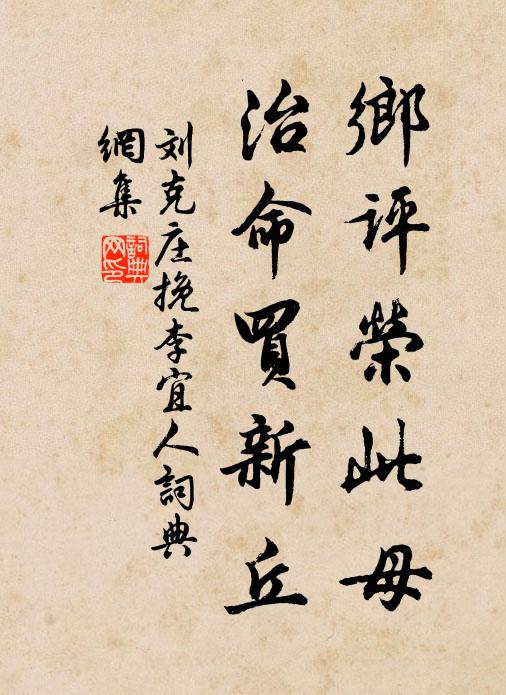 鄉評榮此母
治命買新丘
刘克庄挽李宜人詞典
網集
詞典
网印